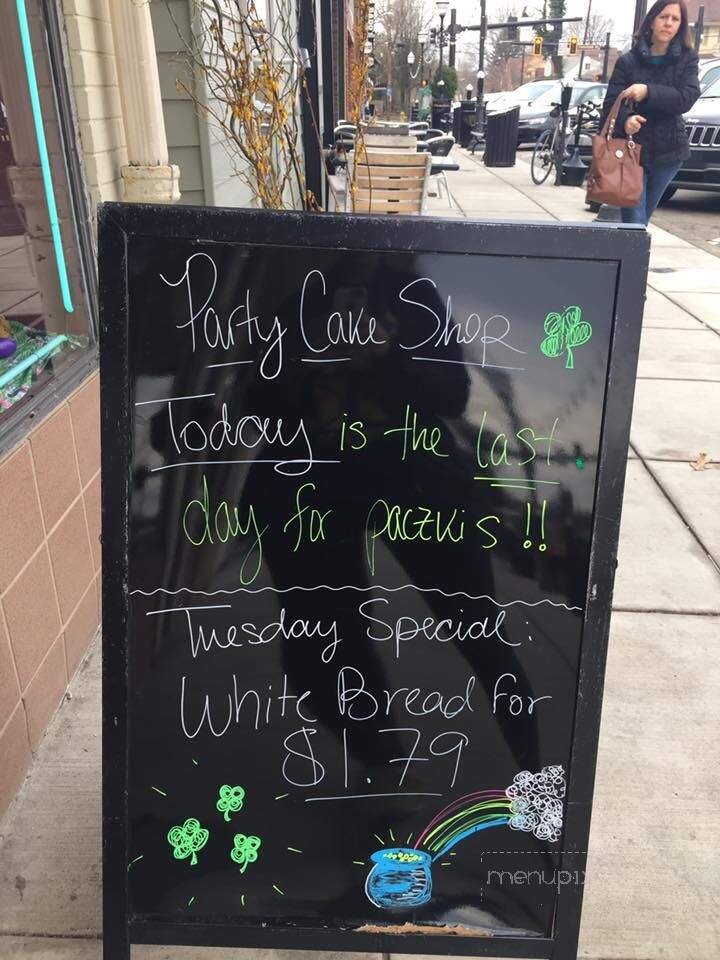 Party Cake Shop
Today is the last
day for paczkis!!
Tuesday Special:
White Bread for
$1.79
menupix